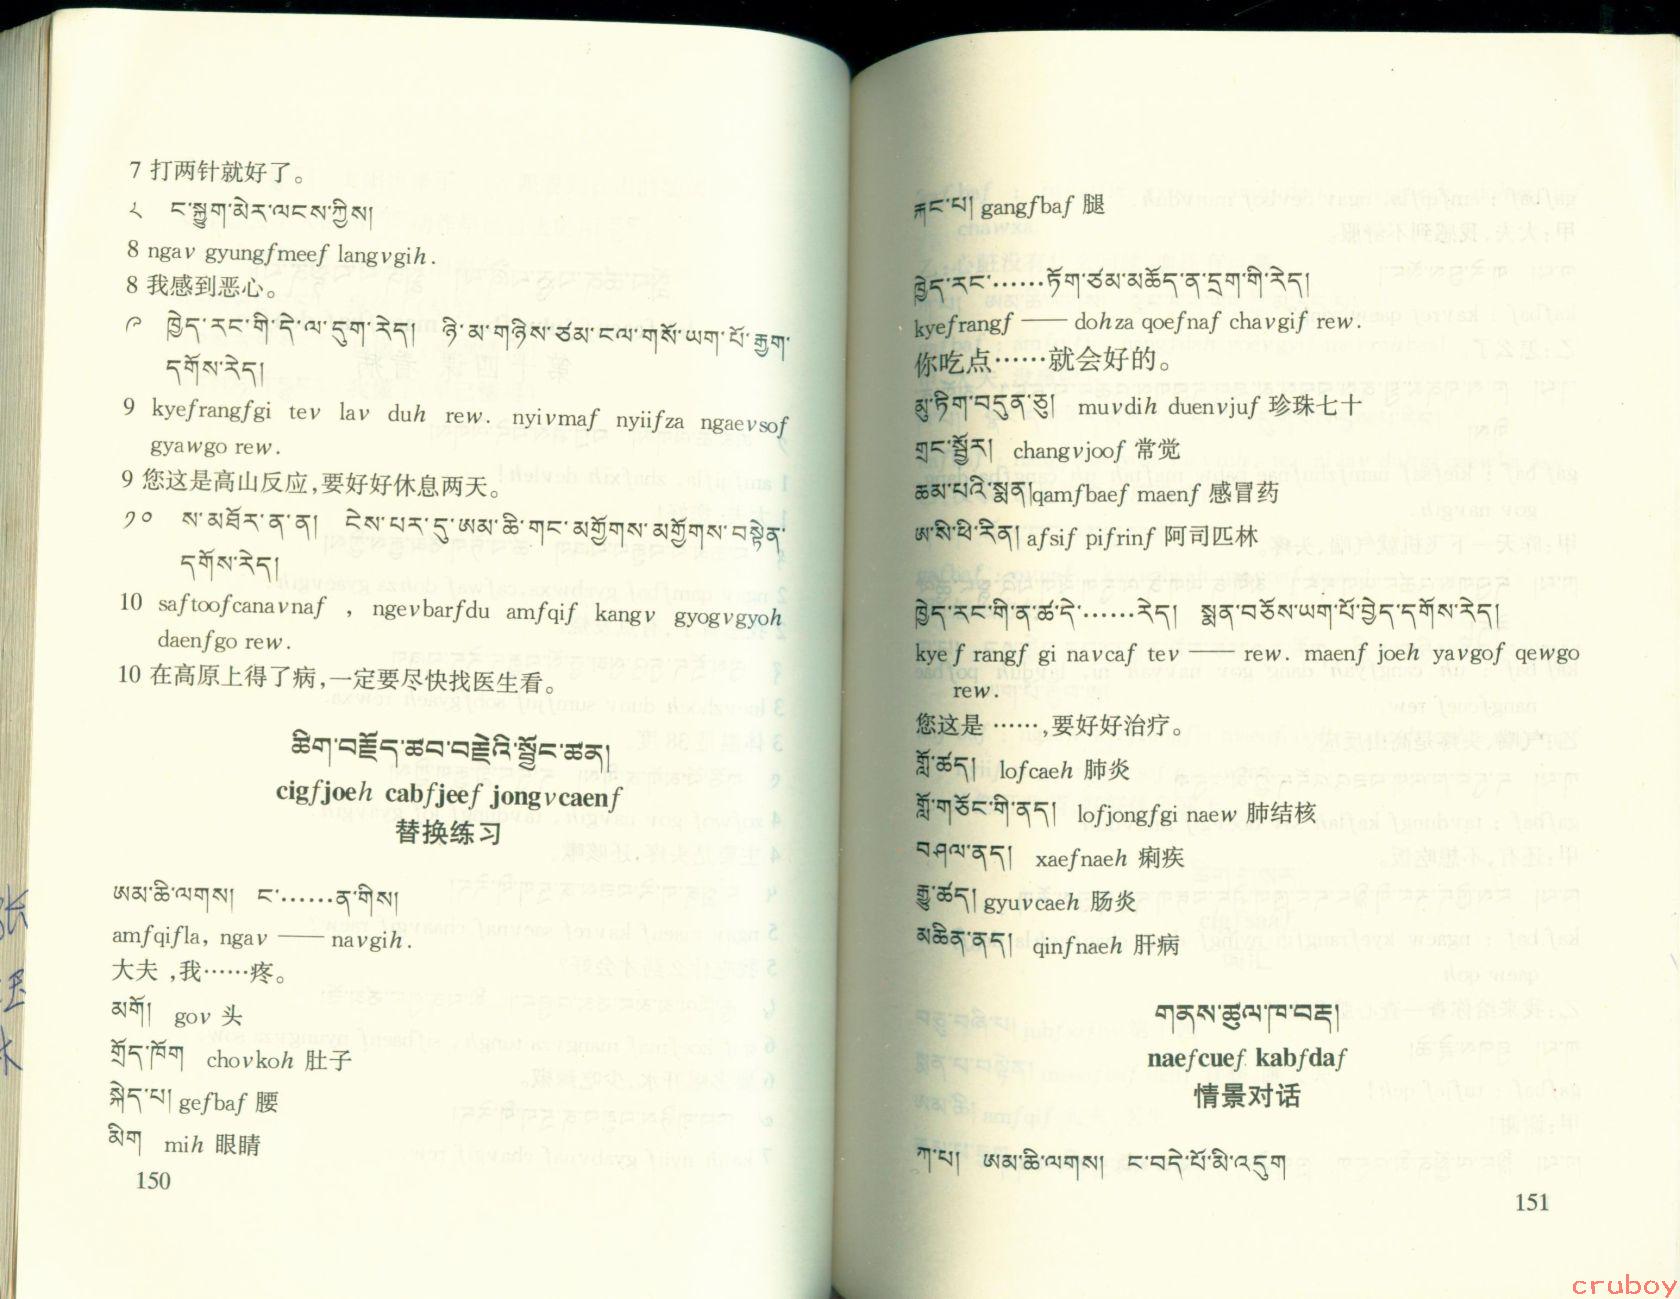 7 打两针就好了。
༨ ང་སྐྱུག་མེར་ལངས་ཀྱིས།
8 ngav gyungfmeef langvgih.
8 我感到恶心。
༩ ཁྱེད་རང་གི་དེ་ལ་དུག་རེད། ཉི་མ་གཉིས་ཙམ་ངལ་གསོ་ཡག་པོ་རྒྱག་
དགོས་རེད།
9 kyefrangfgi tev lav duh rew. nyivmaf nyiifza ngaevsof
gyawgo rew.
9 您这是高山反应,要好好休息两天。
༡༠ ས་མཐོར་ན་ན། ངེས་པར་དུ་ཨམ་ཆི་གང་མགྱོགས་མགྱོགས་བསྟེན་
དགོས་རེད།
10 saftoofcanavnaf , ngevbarfdu amfqif kangv gyogvgyoh
daenfgo rew.
10 在高原上得了病,一定要尽快找医生看。
ཚིག་བརྗོད་ཚབ་བརྗེའི་སྦྱོང་ཚན།
cigfjoeh cabfjeef jongvcaenf
替换练习
ཨམ་ཆི་ལགས། ང་……ན་གིས།
amfqifla, ngav —— navgih.
大夫,我……疼。
མགོ། gov 头
གྲོད་ཁོག chovkoh 肚子
སྐེད་པ། gefbaf 腰
མིག mih 眼睛
150
རྐང་པ། gangfbaf 腿
ཁྱེད་རང་……ཏོག་ཙམ་མཆོད་ན་དྲག་གི་རེད།
kyefrangf —— dohza qoefnaf chavgif rew.
你吃点……就会好的。
མུ་ཏིག་བདུན་ཅུ། muvdih duenvjuf 珍珠七十
གྲང་སྦྱོར། changvjoof 常觉
ཆམ་པའི་སྨན། qamfbaef maenf 感冒药
ཨ་སི་ཕི་རིན། afsif pifrinf 阿司匹林
ཁྱེད་རང་གི་ན་ཚ་དེ་……རེད། སྨན་བཅོས་ཡག་པོ་བྱེད་དགོས་རེད།
kyef rangf gi navcaf tev —— rew. maenf joeh yavgof qewgo
rew.
您这是……,要好好治疗。
གློ་ཚད། lofcaeh 肺炎
གློ་གཅོང་གི་ནད། lofjongfgi naew 肺结核
བཤལ་ནད། xaefnaeh 痢疾
རྒྱུ་ཚད། gyuvcaeh 肠炎
མཆིན་ནད། qinfnaeh 肝病
གནས་ཚུལ་ཁ་བརྡ།
naefcuef kabfdaf
情景对话
ཀ་པ། ཨམ་ཆི་ལགས། ང་བདེ་པོ་མི་འདུག
151
cruboy